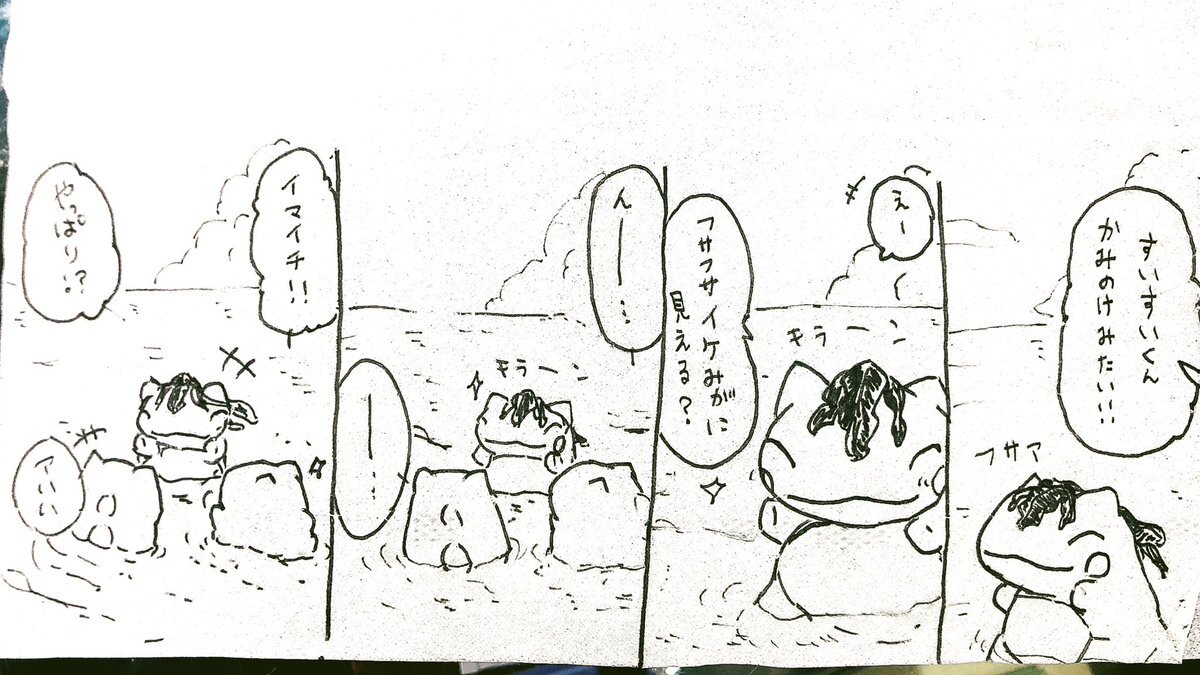 すいすいくん
かみのけみたい!!
フサァ
えー
フサフサイケみがに
見える?
キラーン
んー…
ー…
キラーン
イマイチ!!
やっぱり!?
アハハ